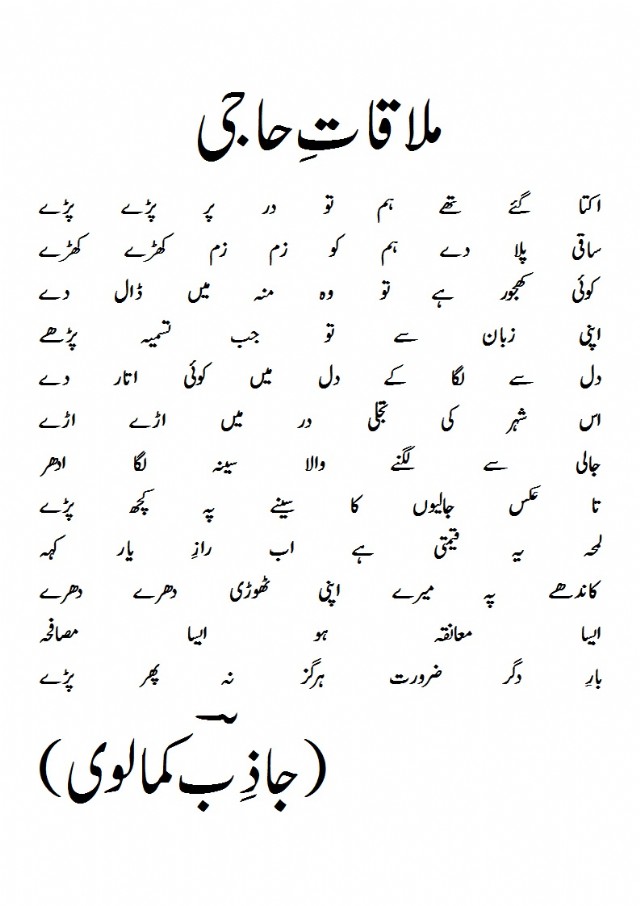 ملاقاتِ حاجی
اکتا گئے تھے ہم تو در پر پڑے پڑے
ساقی پلا دے ہم کو زم زم کھڑے کھڑے
کوئی کھجور ہے تو وہ منہ میں ڈال دے
اپنی زبان سے تو جب تسمیہ پڑھے
دل سے لگا کے دل میں کوئی اتار دے
اس شہر کی تجلی در میں اڑے اڑے
جالی سے لگنے والا سینہ لگا ادھر
تا عکس جالیوں کا سینے پہ کچھ پڑے
لمحہ یہ قیمتی ہے اب رازِ یار کہہ
کاندھے پہ میرے اپنی ٹھوڑی دھرے دھرے
ایسا معانقہ ہو ایسا مصافحہ
بارِ دگر ضرورت ہرگز نہ پھر پڑے
(جاذِبؔ کمالوی)